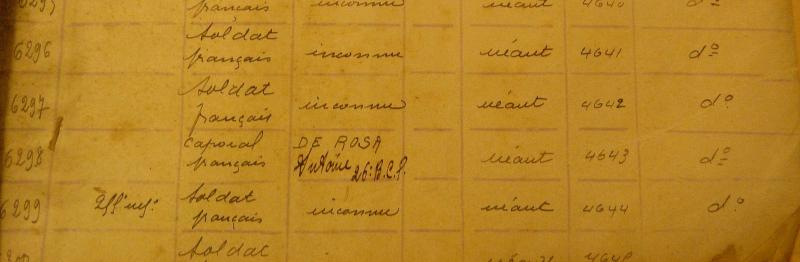 français inconnu néant 4640
6296 Soldat français inconnu néant 4641 d°
6297 Soldat français inconnu néant 4642 d°
6298 caporal français DE ROSA Antoine 26e B.C.P. néant 4643 d°
6299 Soldat français inconnu néant 4644 d°
Soldat